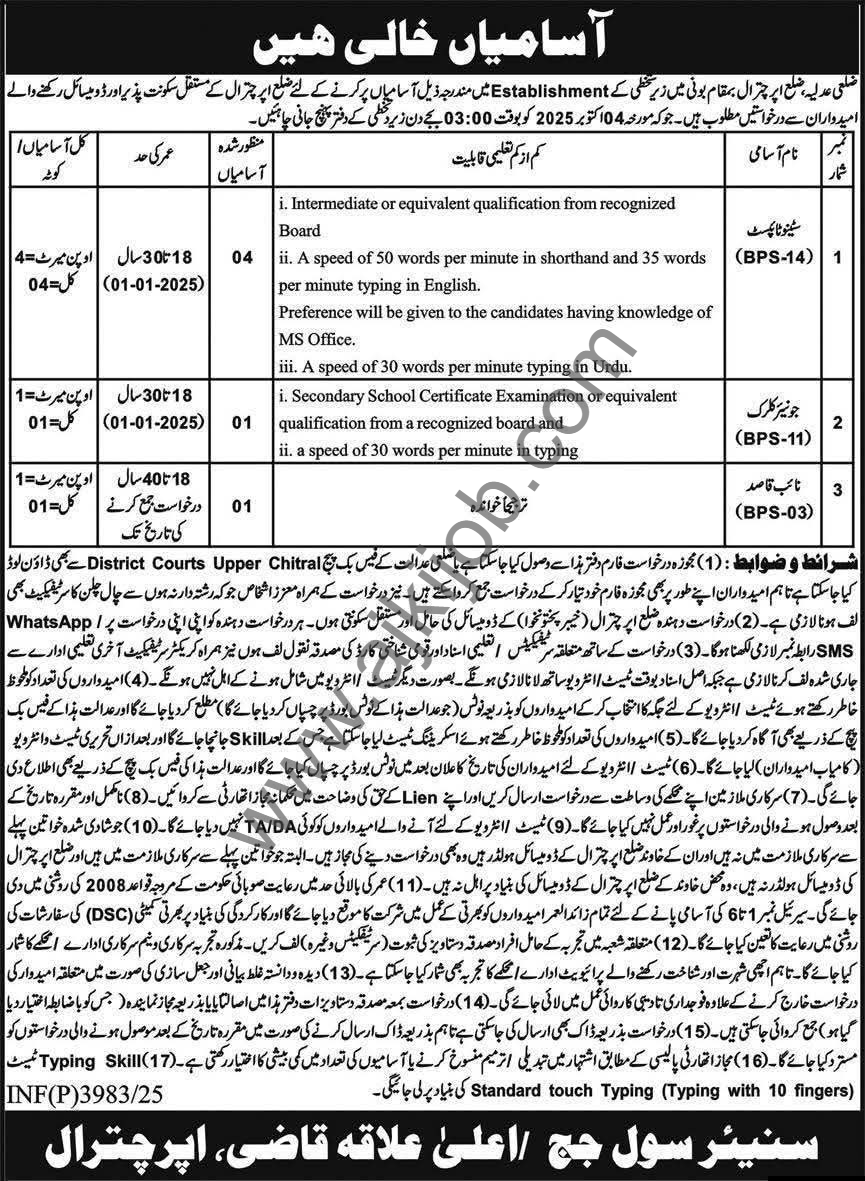 آسامیاں خالی ہیں
ضلعی عدلیہ، ضلع اپر چترال بمقام بونی میں زیر دستخطی کے Establishment میں مندرجہ ذیل آسامیاں پر کرنے کے لئے ضلع اپر چترال کے مستقل سکونت پذیر اور ڈومیسائل رکھنے والے
امیدواران سے درخواستیں مطلوب ہیں۔ جو کہ مورخہ 04 اکتوبر 2025 کو بوقت 03:00 بجے دن زیر دستخطی کے دفتر پہنچ جانی چاہئیں۔
نمبر شمار
نام آسامی
کم از کم تعلیمی قابلیت
منظور شدہ آسامیاں
عمر کی حد
کل آسامیاں/ کوٹہ
1
سٹینو ٹائپسٹ
(BPS-14)
i. Intermediate or equivalent qualification from recognized
Board
ii. A speed of 50 words per minute in shorthand and 35 words
per minute typing in English.
Preference will be given to the candidates having knowledge of
MS Office.
iii. A speed of 30 words per minute typing in Urdu.
04
18 تا 30 سال
(01-01-2025)
اوپن میرٹ=4
کل=04
2
جونیئر کلرک
(BPS-11)
i. Secondary School Certificate Examination or equivalent
qualification from a recognized board and
ii. a speed of 30 words per minute in typing
01
18 تا 30 سال
(01-01-2025)
اوپن میرٹ=1
کل=01
3
نائب قاصد
(BPS-03)
ترجیحاً خواندہ
01
18 تا 40 سال
درخواست جمع کرنے
کی تاریخ تک
اوپن میرٹ=1
کل=01
شرائط و ضوابط: (1) مجوزہ درخواست فارم دفتر ہذا سے وصول کیا جا سکتا ہے یا ضلعی عدالت کے فیس بک پیج District Courts Upper Chitral سے بھی ڈاؤن لوڈ
کیا جا سکتا ہے تاہم امیدواران اپنے طور پر بھی مجوزہ فارم خود تیار کر کے درخواست جمع کروا سکتے ہیں۔ نیز درخواست کے ہمراہ معزز اشخاص جو کہ رشتہ دار نہ ہوں سے چال چلن کا سرٹیفکیٹ بھی
لف ہونا لازمی ہے۔ (2) درخواست دہندہ ضلع اپر چترال (خیبر پختونخوا) کے ڈومیسائل کی حامل اور مستقل سکونتی ہوں۔ ہر درخواست دہندہ کو اپنی اپنی درخواست پر WhatsApp/
SMS رابطہ نمبر لازمی لکھنا ہوگا۔ (3) درخواست کے ساتھ متعلقہ سرٹیفکیٹس/ تعلیمی اسناد اور قومی شناختی کارڈ کی مصدقہ نقول لف ہوں نیز ہمراہ کریکٹر سرٹیفکیٹ آخری تعلیمی ادارے سے
جاری شدہ لف کرنا لازمی ہے جبکہ اصل اسناد بوقت ٹیسٹ/ انٹرویو ساتھ لانا لازمی ہونگے۔ بصورت دیگر ٹیسٹ/ انٹرویو میں شامل ہونے کے اہل نہیں ہونگے۔ (4) امیدواروں کی تعداد کو ملحوظ
خاطر رکھتے ہوئے ٹیسٹ/ انٹرویو کے لئے جگہ کا انتخاب کر کے امیدواروں کو بذریعہ نوٹس (جو عدالت ہذا کے نوٹس بورڈ پر چسپاں کر دیا جائے گا) مطلع کر دیا جائے گا اور عدالت ہذا کے فیس بک
پیج کے ذریعے بھی آگاہ کر دیا جائے گا۔ (5) امیدواروں کی تعداد کو ملحوظ خاطر رکھتے ہوئے اسکریننگ ٹیسٹ لیا جا سکتا ہے جس کے بعد Skill جانچا جائے گا اور بعد ازاں تحریری ٹیسٹ و انٹرویو
(کامیاب امیدواران) لیا جائے گا۔ (6) ٹیسٹ/ انٹرویو کے لئے امیدواران کی تاریخ کا اعلان بعد میں نوٹس بورڈ پر چسپاں کیا جائے گا اور عدالت ہذا کی فیس بک پیج کے ذریعے بھی اطلاع دی
جائے گی۔ (7) سرکاری ملازمین اپنے محکمے کی وساطت سے درخواست ارسال کریں اور اپنے Lien کے حق کی وضاحت میں محکمانہ مجاز اتھارٹی سے کروائیں۔ (8) نامکمل اور مقررہ تاریخ کے
بعد وصول ہونے والی درخواستوں پر غور اور عمل نہیں کیا جائے گا۔ (9) ٹیسٹ/ انٹرویو کے لئے آنے والے امیدواروں کو کوئی TA/DA نہیں دیا جائے گا۔ (10) جو شادی شدہ خواتین پہلے
سے سرکاری ملازمت میں نہ ہیں اور ان کے خاوند ضلع اپر چترال کے ڈومیسائل ہولڈر ہیں وہ بھی درخواست دینے کی مجاز ہیں۔ البتہ جو خواتین پہلے سے سرکاری ملازمت میں ہیں اور ضلع اپر چترال
کی ڈومیسائل ہولڈر نہ ہیں، وہ محض خاوند کے ضلع اپر چترال کے ڈومیسائل کی بنیاد پر اہل نہ ہیں۔ (11) عمر کی بالائی حد میں رعایت صوبائی حکومت کے مروجہ قواعد 2008 کی روشنی میں دی
جائے گی۔ سیریل نمبر 1 تا 6 کی آسامی پانے کے لئے تمام زائد العمر امیدواروں کو بھرتی کے عمل میں شرکت کا موقع دیا جائے گا اور کارکردگی کی بنیاد پر بھرتی کمیٹی (DSC) کی سفارشات کی
روشنی میں رعایت کا تعین کیا جائے گا۔ (12) متعلقہ شعبہ میں تجربہ کے حامل افراد مصدقہ دستاویز کی ثبوت (سرٹیفکیٹس وغیرہ) لف کریں۔ مذکورہ تجربہ سرکاری و نیم سرکاری ادارے/ محکمے کا شمار
کیا جائے گا۔ تاہم اچھی شہرت اور شناخت رکھنے والے پرائیویٹ ادارے/ محکمے کا تجربہ بھی شمار کیا جا سکتا ہے۔ (13) دیدہ و دانستہ غلط بیانی اور جعل سازی کی صورت میں متعلقہ امیدوار کی
درخواست خارج کرنے کے علاوہ فوجداری تادیبی کاروائی عمل میں لائی جائے گی۔ (14) درخواست بمعہ مصدقہ دستاویزات دفتر ہذا میں اصالتاً یا بذریعہ مجاز نمائندہ (جس کو باضابطہ اختیار دیا
گیا ہو) جمع کروائی جا سکتی ہیں۔ (15) درخواست بذریعہ ڈاک بھی ارسال کی جا سکتی ہے تاہم بذریعہ ڈاک ارسال کرنے کی صورت میں مقررہ تاریخ کے بعد موصول ہونے والی درخواستوں کو
مسترد کیا جائے گا۔ (16) مجاز اتھارٹی پالیسی کے مطابق اشتہار میں تبدیلی/ ترمیم منسوخ کرنے یا آسامیوں کی تعداد میں کمی بیشی کا اختیار رکھتی ہے۔ (17) Typing Skill ٹیسٹ
Standard touch Typing (Typing with 10 fingers) کی بنیاد پر لی جائیگی۔
INF(P)3983/25
سنیئر سول جج /اعلیٰ علاقہ قاضی، اپر چترال
www.ajkjob.com